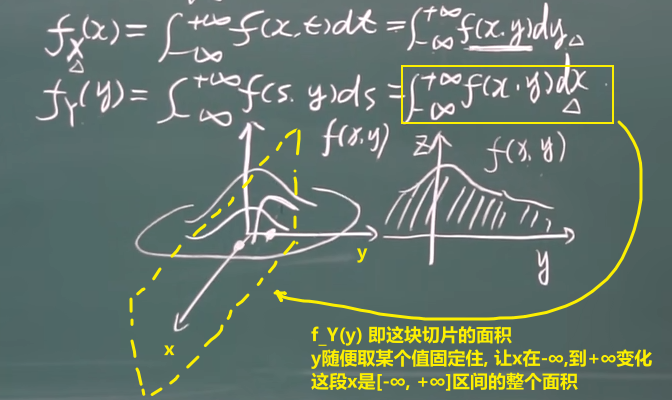 f_X(x) = ∫_{-∞}^{+∞} f(x,t)dt = ∫_{-∞}^{+∞} f(x,y)dy
f_Y(y) = ∫_{-∞}^{+∞} f(s,y)ds = ∫_{-∞}^{+∞} f(x,y)dx
f(x,y)
z
f(x,y)
y
y
x
f_Y(y) 即这块切片的面积
y随便取某个值固定住, 让x在-∞,到+∞变化
这段x是[-∞, +∞]区间的整个面积